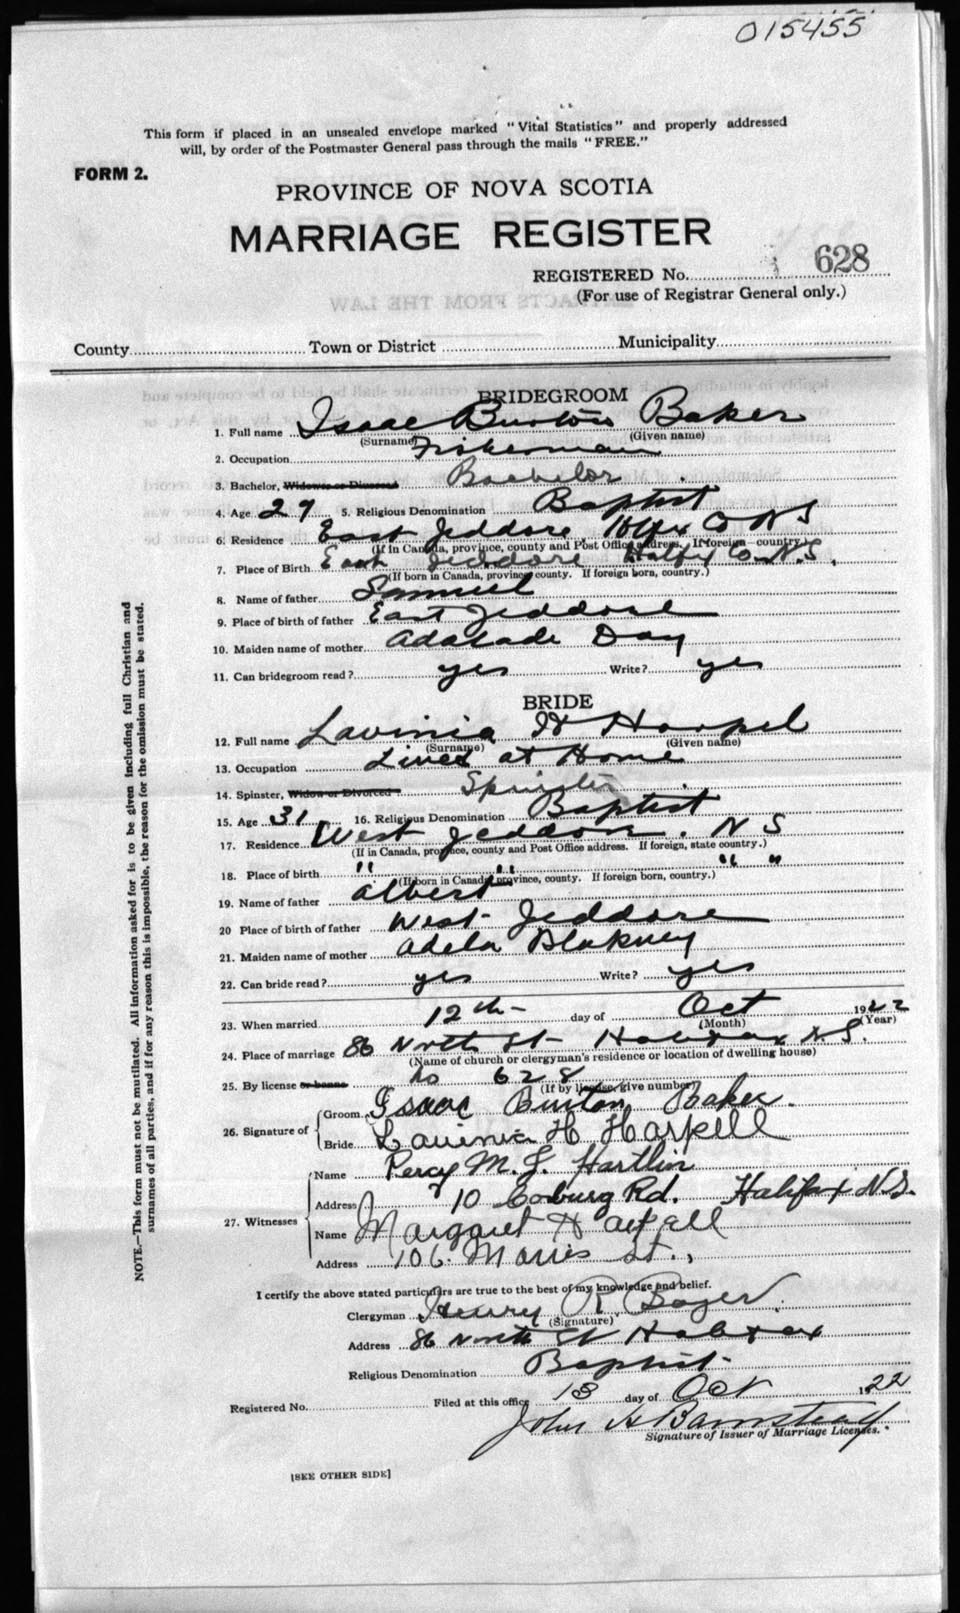 015455
This form if placed in an unsealed envelope marked "Vital Statistics" and properly addressed
will, by order of the Postmaster General pass through the mails "FREE."
FORM 2.
PROVINCE OF NOVA SCOTIA
MARRIAGE REGISTER
REGISTERED No. 628
(For use of Registrar General only.)
County Town or District Municipality
BRIDEGROOM
1. Full name Isaac Burton Baker
(Surname) (Given name)
2. Occupation Fisherman
3. Bachelor, Widower or Divorced Bachelor
4. Age 27 5. Religious Denomination Baptist
6. Residence East Jeddore Hlfx Co N S
(If in Canada, province, county and Post Office address. If foreign country.)
7. Place of Birth East Jeddore Halfx Co. N.S.
(If born in Canada, province county. If foreign born, country.)
8. Name of father Samuel
9. Place of birth of father East Jeddore
10. Maiden name of mother Adalade Day
11. Can bridegroom read? yes Write? yes
BRIDE
12. Full name Lavinia H Harpel
(Surname) (Given name)
13. Occupation Lives at Home
14. Spinster, Widow or Divorced Spinster
15. Age 31 16. Religious Denomination Baptist
17. Residence West Jeddore. N S
(If in Canada, province, county and Post Office address. If foreign, state country.)
18. Place of birth " " " "
(If born in Canada, province, county. If foreign born, country.)
19. Name of father Albert
20 Place of birth of father West Jeddore
21. Maiden name of mother Adela Blakney
22. Can bride read? yes Write? yes
23. When married 12th day of Oct 1922
(Month) (Year)
24. Place of marriage 86 North St Halifax N.S.
(Name of church or clergyman's residence or location of dwelling house)
25. By license or banns No 628
(If by license, give number)
26. Signature of
Groom Isaac Burton Baker.
Bride Lavinia H Harpell
27. Witnesses
Name Percy M. J. Hartlin
Address 710 Coburg Rd. Halifax N.S.
Name Margaret Harpell
Address 106 Morris St.,
I certify the above stated particulars are true to the best of my knowledge and belief.
Clergyman Henry R. Boyer.
(Signature)
Address 86 North St Halifax
Religious Denomination Baptist
Registered No. Filed at this office 13 day of Oct 1922
John H Barnstead
Signature of Issuer of Marriage Licenses.
[SEE OTHER SIDE]
NOTE.—This form must not be mutilated. All information asked for is to be given including full Christian and
surnames of all parties, and if for any reason this is impossible, the reason for the omission must be stated.